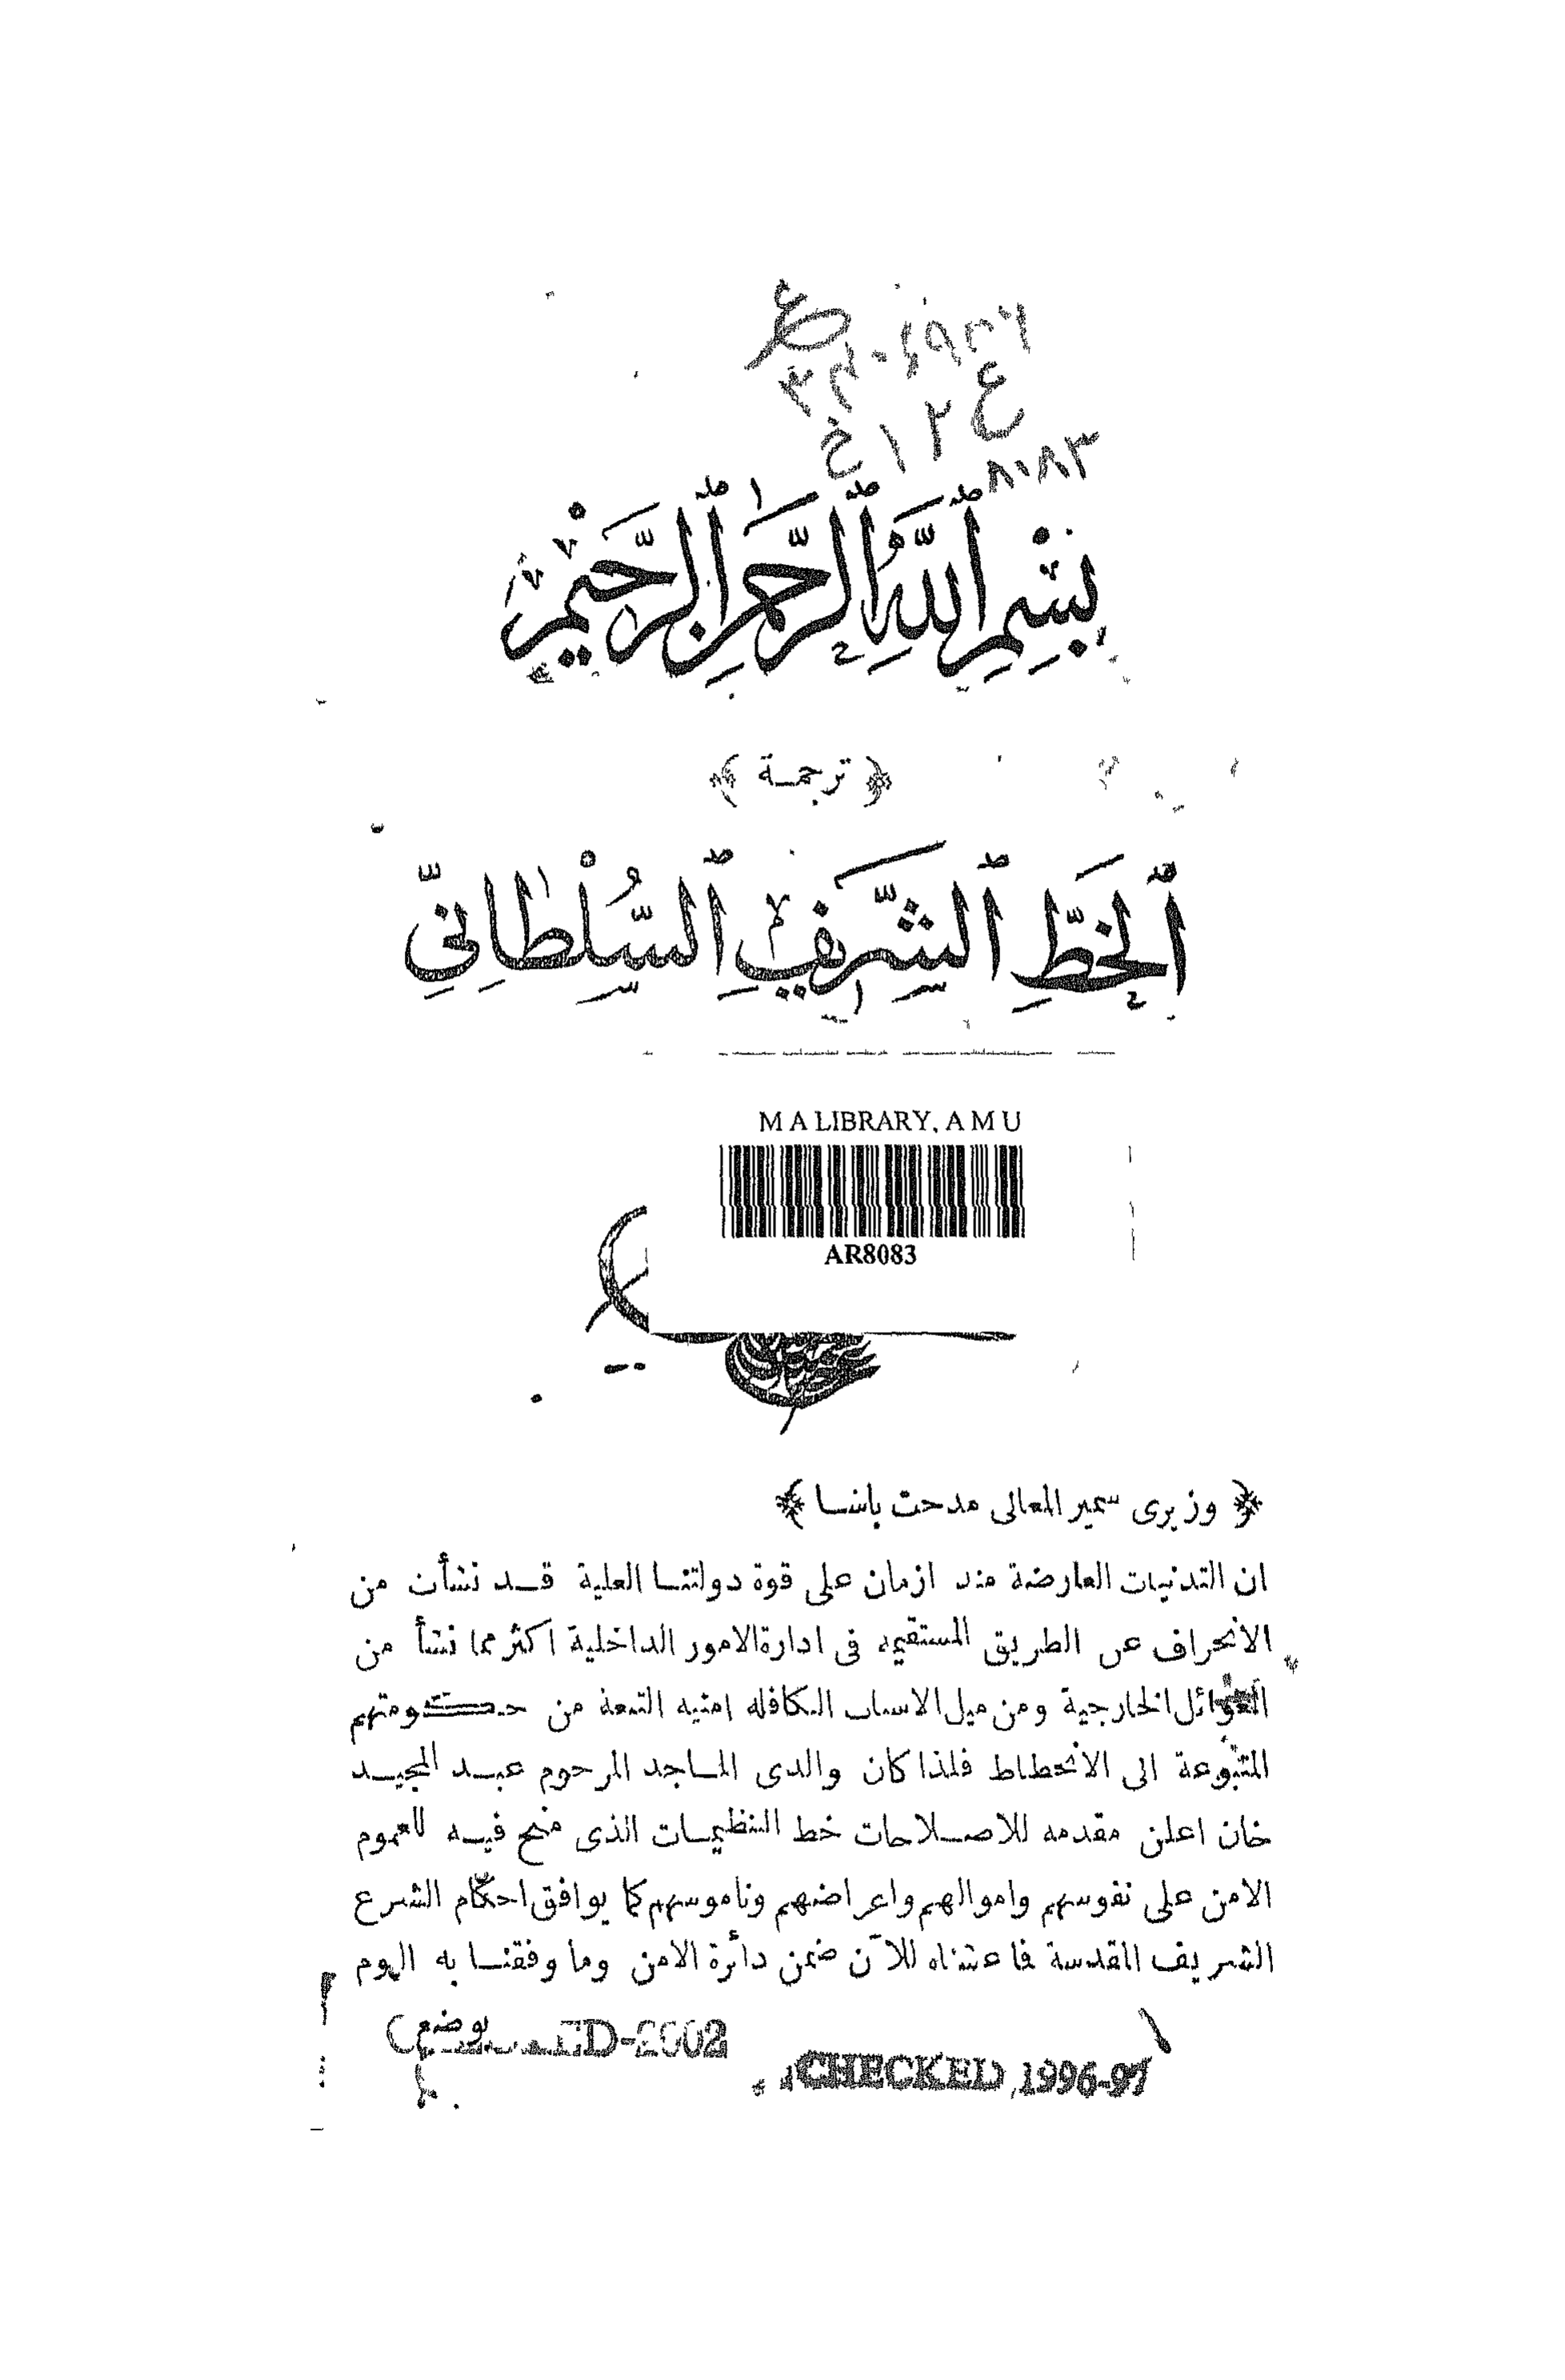 ع
٣٢٠٤٩٥٦
ع ١٢ خ
٨٠٨٣
بِسْمِ ٱللَّهِ ٱلرَّحْمَٰنِ ٱلرَّحِيْمِ
﴿ ترجمـة ﴾
ٱلْخَطِّ ٱلشَّرِيفِ ٱلسُّلْطَانِيِّ
M A LIBRARY, A M U
AR8083
﴿ وزيرى سمير المعالى مدحت باشا ﴾
ان التدنيات العارضة منذ ازمان على قوة دولتنا العلية قد نشأت من
الانحراف عن الطريق المستقيمه فى ادارة الامور الداخلية اكثر مما نشأ من
الغوائل الخارجية ومن ميل الاسباب الكافله امنيه التبعة من حكومتهم
المتبوعة الى الانحطاط فلذا كان والدى الماجد المرحوم عبد المجيد
خان اعلن مقدمه للاصلاحات خط التنظيمات الذى منح فيه للعموم
الامن على نفوسهم واموالهم واعراضهم وناموسهم كما يوافق احكام الشرع
الشريف المقدسة فاعشناه للآن ضمن دائرة الامن وما وفقنا به اليوم
بوضع
CHECKED-2002
CHECKED 1996-97